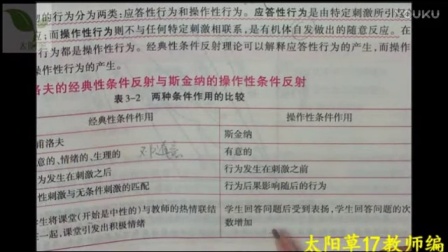 YOUKU
的行为分为两类：应答性行为和操作性行为。应答性行为是由特定刺激所引
应；而操作性行为则不与任何特定刺激相联系，是有机体自发做出的随意反应。在
行为都是操作性行为。经典性条件反射理论可以解释应答性行为的产生，而操作
性行为的产生。
洛夫的经典性条件反射与斯金纳的操作性条件反射
表3-2 两种条件作用的比较
经典性条件作用 操作性条件作用
甫洛夫 斯金纳
意的、情绪的、生理的 有意的
为发生在刺激之后 行为发生在刺激之前
性刺激与无条件刺激的匹配 行为后果影响随后的行为
生将课堂（开始是中性的）与教师的热情联结 学生回答问题后受到表扬，学生回答问题的次
在一起，课堂引发出积极情绪 数增加
太阳草17教师编